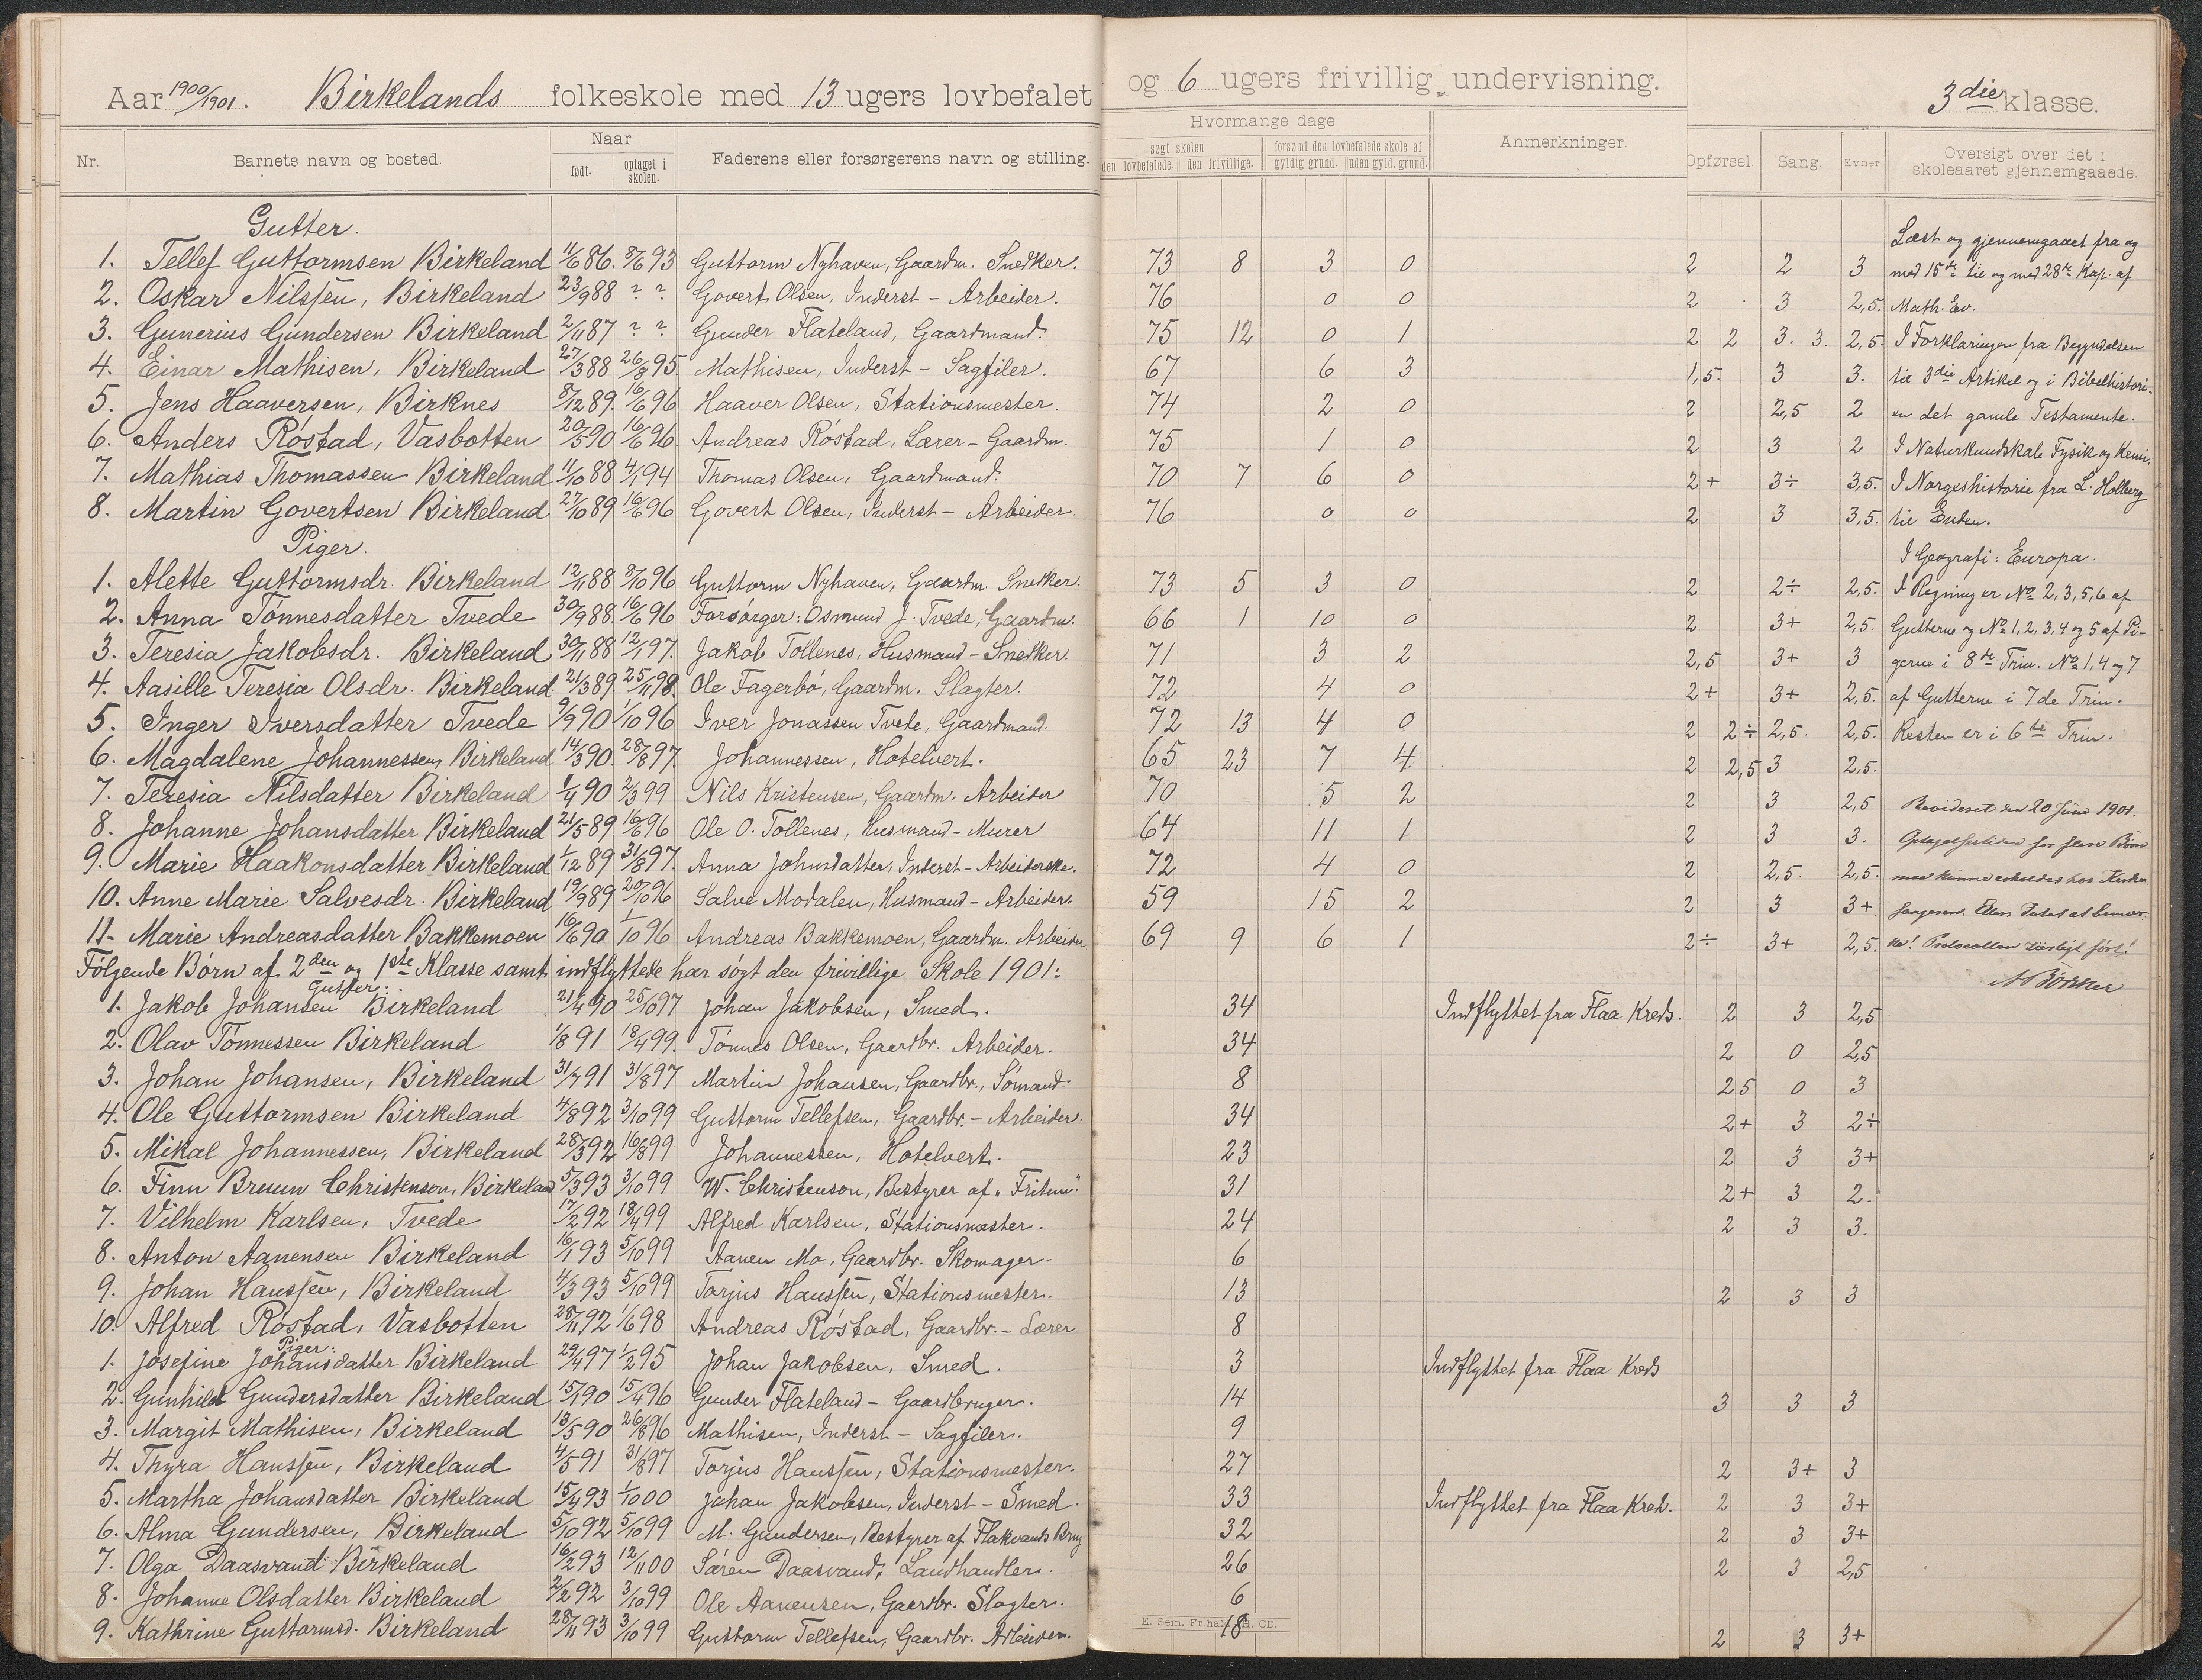 Aar 1900/1901. Birkelands folkeskole med 13 ugers lovbefalet og 6 ugers frivillig undervisning. 3die klasse.
Nr. Barnets navn og bosted. Naar født. optaget i skolen. Faderens eller forsørgerens navn og stilling. Hvormange dage søgt skolen den lovbefalede. den frivillige. forsømt den lovbefalede skole af gyldig grund. uden gyld. grund. Anmerkninger. Opførsel. Sang. Evner Oversigt over det i skoleaaret gjennemgaaede.
Gutter. Læst og gjennemgaaet fra og
1. Tellef Guttormsen Birkeland 11/6 86. 8/6 93 Guttorm Nyhaven, Gaardm. Snedker. 73 8 3 0 2 2 3 med 15de til og med 28de Kap. af
2. Oskar Nilssen, Birkeland 23/9 88 ? ? Govert Olsen, Inderst - Arbeider. 76 0 0 2 3 2,5. Math. Ev.
3. Gunerius Gundersen Birkeland 2/11 87 ? ? Gunder Flateland, Gaardmand. 75 12 0 1 2 2 3. 3. 2,5. I Forklaringen fra Begyndelsen
4. Einar Mathisen, Birkeland 27/3 88 26/8 95. Mathisen, Inderst - Sagfiler. 67 6 3 1,5. 3 3. til 3die Artikel og i Bibelhistori-
5. Jens Haaversen, Birknes 8/12 89. 16/6 96 Haaver Olsen, Stationsmester. 74 2 0 2 2,5 2 en det gamle Testamente.
6. Anders Røstad, Vasbotten 20/5 90 16/6 96. Andreas Røstad, Lærer - Gaardm. 75 1 0 2 3 2 I Naturkundskab Fysik og Kemi.
7. Mathias Thomassen Birkeland 11/10 88 4/1 94 Thomas Olsen, Gaardmand. 70 7 6 0 2+ 3÷ 3,5. I Norgeshistorie fra L. Holberg
8. Martin Govertsen Birkeland 27/10 89 16/6 96 Govert Olsen, Inderst - Arbeider. 76 0 0 2 3 3,5. til Enden.
Piger. I Geografi: Europa.
1. Alette Guttormsdr. Birkeland 12/11 88 8/10 96 Guttorm Nyhaven, Gaardm. Snedker. 73 5 3 0 2 2÷ 2,5. I Regning er No 2, 3, 5, 6 af
2. Anna Tønnesdatter Tvede 30/9 88. 16/6 96 Forsørger: Osmund J. Tvede, Gaardm. 66 1 10 0 2 3+ 2,5. Gutterne og No 1, 2, 3, 4 og 5 af Pi-
3. Teresia Jakobsdr. Birkeland 30/11 88 12/1 97. Jakob Tollenes, Husmand - Snekker. 71 3 2 2,5 3+ 3 gerne i 8de Trin. No 1, 4 og 7
4. Aasille Teresia Olsdr. Birkeland. 21/3 89. 25/11 98. Ole Fagerbø, Gaardm. Slagter. 72 4 0 2+ 3+ 2,5. af Gutterne i 7de Trin.
5. Inger Iversdatter Tvede 9/9 90 1/10 96 Iver Jonassen Tvede, Gaardmand. 72 13 4 0 2 2÷ 2,5. 2,5. Resten er i 6te Trin.
6. Magdalene Johannessen, Birkeland 14/3 90. 28/8 97. Johannessen, Hotelvert. 65 23 7 4 2 2,5 3 2,5.
7. Teresia Nilsdatter Birkeland 1/4 90 2/3 99 Nils Kristensen, Gaardm. Arbeider 70 5 2 2 3 2,5 Revideret den 20 Juni 1901.
8. Johanne Johansdatter Birkeland 21/5 89 16/6 96 Ole O. Tollenes, Husmand - Murer 64 11 1 2 3 3. Optagelsestiden for flere Børn
9. Marie Haakonsdatter Birkeland 1/12 89 31/8 97. Anna Johnsdatter, Inderst - Arbeiderske. 72 4 0 2 2,5. 2,5. maa kunne erholdes hos Kirke-
10. Anne Marie Salvesdr. Birkeland 19/9 89 20/10 96 Salve Modalen, Husmand - Arbeider. 59 15 2 2 3 3+ sangeren. Ellers Intet at bemær-
11. Marie Andreasdatter Bakkemoen 16/6 90 1/10 96 Andreas Bakkemoen, Gaardm. Arbeider. 69 9 6 1 2÷ 3+ 2,5. ke! Protocollen særligt ført!
Følgende Børn af 2den og 1ste Klasse samt indflyttede har søgt den frivillige Skole 1901:
Gutter:
1. Jakob Johansen Birkeland 21/4 90 25/10 97 Johan Jakobsen, Smed. 34 Indflyttet fra Flaa Kreds. 2 3 2,5
2. Olav Tønnessen Birkeland 1/8 91 18/4 99. Tønnes Olsen, Gaardbr. Arbeider. 34 2 0 2,5
3. Johan Johansen, Birkeland 31/7 91 31/8 97 Martin Johansen, Gaardbr., Sømand 8 25 0 3
4. Ole Guttormsen Birkeland 4/8 92 3/10 99 Guttorm Tellefsen, Gaardbr. - Arbeider. 34 2+ 3 2÷
5. Mikal Johannessen, Birkeland 28/3 92 16/8 99 Johannessen, Hotelvert. 23 2 3 3+
6. Finn Bruun Christenson, Birkeland 5/3 93 3/10 99 W. Christenson, Bestyrer af "Fritun". 31 2+ 3 2.
7. Vilhelm Karlsen, Tvede 17/2 92 18/4 99 Alfred Karlsen, Stationsmester. 24 2 3 3.
8. Anton Aanensen Birkeland 16/1 93 5/10 99 Aanen Mo, Gaardbr. Skomager. 6
9. Johan Hanssen, Birkeland 4/3 93 5/10 99 Torjus Hanssen, Stationsmester. 13 2 3 3
10. Alfred Røstad, Vasbotten 28/11 92 1/6 98 Andreas Røstad, Gaardbr. - Lærer 8
Piger:
1. Josefine Johansdatter Birkeland 29/4 97 1/2 95 Johan Jakobsen, Smed. 3 Indflyttet fra Flaa Kreds
2. Gunhild Gundersdatter Birkeland 15/1 90 15/4 96 Gunder Flateland - Gaardbruger. 14 3 3 3
3. Margit Mathisen, Birkeland 13/5 90 26/8 96 Mathisen, Inderst - Sagfiler. 9
4. Thyra Hanssen, Birkeland 4/5 91 31/8 97 Torjus Hanssen, Stationsmester. 27 2 3+ 3
5. Martha Johansdatter Birkeland 15/4 93 1/10 00 Johan Jakobsen, Inderst - Smed. 33 Indflyttet fra Flaa Kred. 2 3 3+
6. Alma Gundersen, Birkeland 5/10 92 5/10 99 M. Gundersen, Bestyrer af Flakvands Brug 32 2 3 3+
7. Olga Daasvand Birkeland 16/2 93 12/11 00 Søren Daasvand, Landhandler. 26 2 3 2,5
8. Johanne Olsdatter Birkeland 2/2 92 3/10 99 Ole Aanensen, Gaardbr. Slagter. 6
9. Kathrine Guttormsd. Birkeland 28/11 93 3/10 99 Guttorm Tellefsen, Gaardbr. Arbeider. 18 2 3 3+